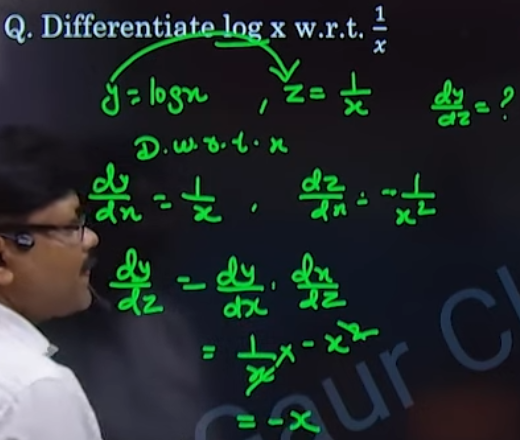 Q. Differentiate log x w.r.t. 1/x
y = logx , z = 1/x dy/dz = ?
D.w.r.t.x
dy/dx = 1/x , dz/dx = -1/x²
dy/dz = dy/dx . dx/dz
= 1/x x - x²
= -x
Gaur C